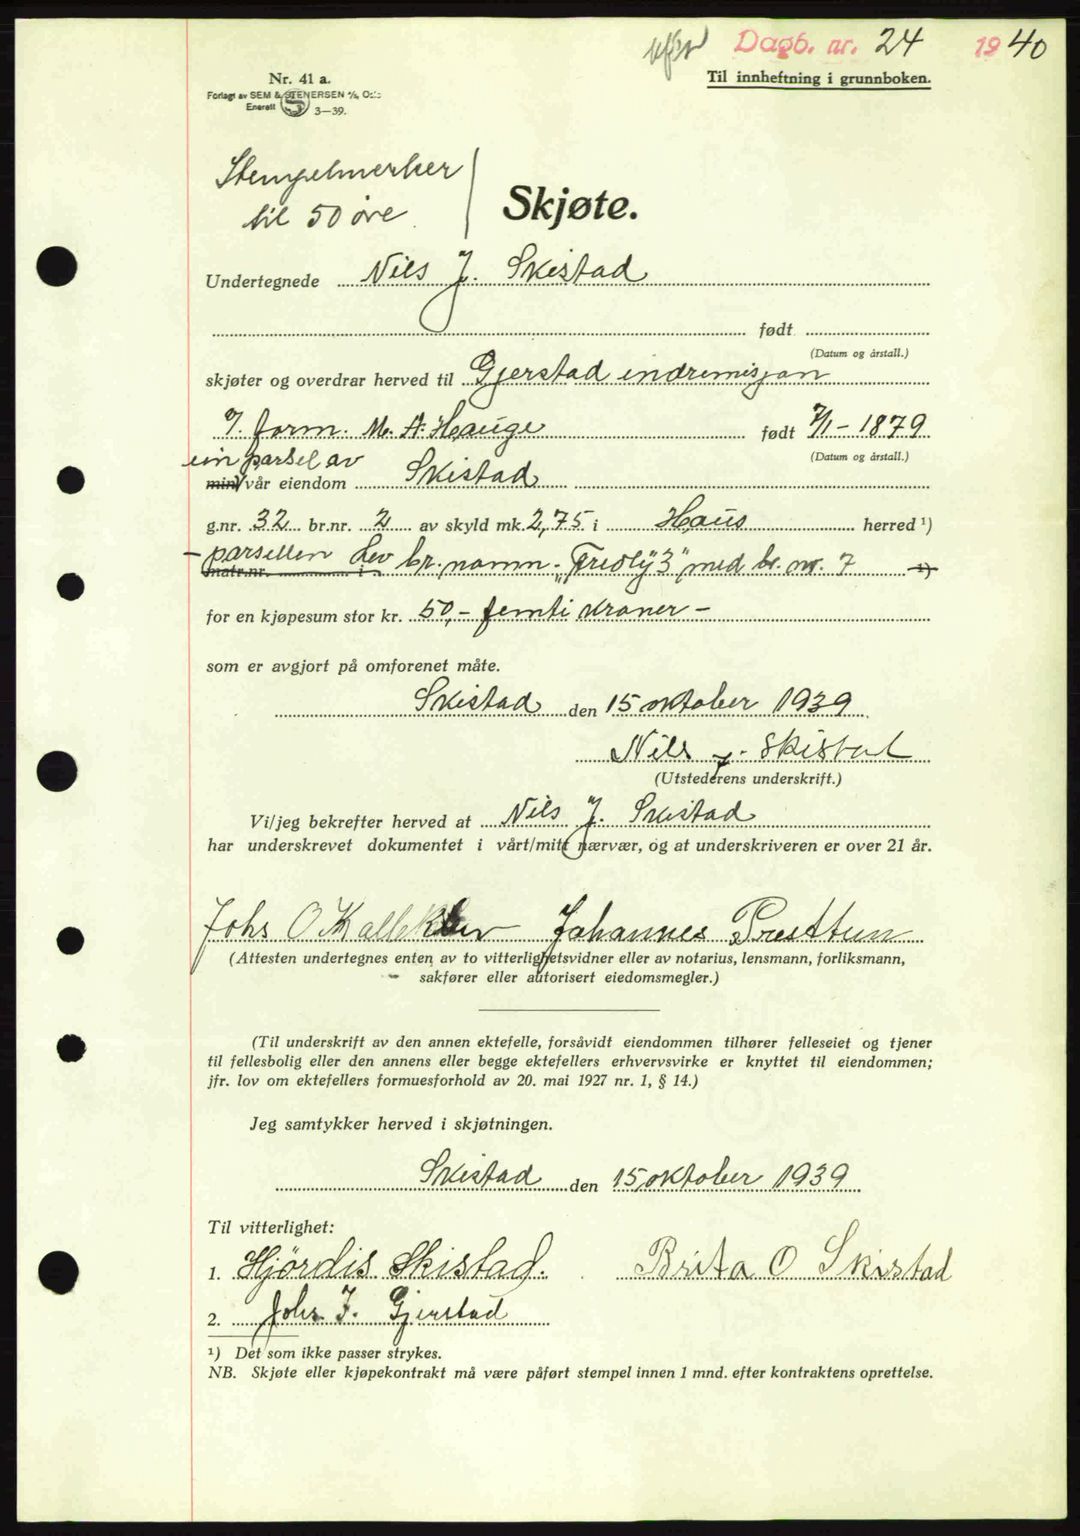 Dagb. nr. 24 1940
Nr. 41 a.
Til innheftning i grunnboken.
Forlagt av SEM & STENERSEN A/S, Oslo
Enerett S 3—39.
Stempelmerker
til 50 øre
Skjøte.
Undertegnede Nils J. Skistad
født
(Datum og årstall.)
skjøter og overdrar herved til Gjerstad indremisjon
v. form. M. A. Hauge født 7/1 - 1879
(Datum og årstall.)
ein parsel av
min/vår eiendom Skistad
g.nr. 32 br.nr. 2 av skyld mk. 2,75 i Haus herred ¹)
- parsellen hev br. namn - "Fredly 3" med br. nr. 7
matr.nr. i ¹)
for en kjøpesum stor kr. 50,- femti kroner -
som er avgjort på omforenet måte.
Skistad den 15 oktober 1939
Nils J. Skistad
(Utstederens underskrift.)
Vi/jeg bekrefter herved at Nils J. Skistad
har underskrevet dokumentet i vårt/mitt nærvær, og at underskriveren er over 21 år.
Johs O Kallekleiv Johannes Prestun
(Attesten undertegnes enten av to vitterlighetsvidner eller av notarius, lensmann, forliksmann,
sakfører eller autorisert eiedomsmegler.)
(Til underskrift av den annen ektefelle, forsåvidt eiendommen tilhører felleseiet og tjener
til fellesbolig eller den annens eller begge ektefellers erhvervsvirke er knyttet til eiendommen;
jfr. lov om ektefellers formuesforhold av 20. mai 1927 nr. 1, § 14.)
Jeg samtykker herved i skjøtningen.
Skistad den 15 oktober 1939
Til vitterlighet:
1. Hjördis Skistad. Brita O Skistad
2. Johs. J. Gjerstad
¹) Det som ikke passer strykes.
NB. Skjøte eller kjøpekontrakt må være påført stempel innen 1 mnd. efter kontraktens oprettelse.